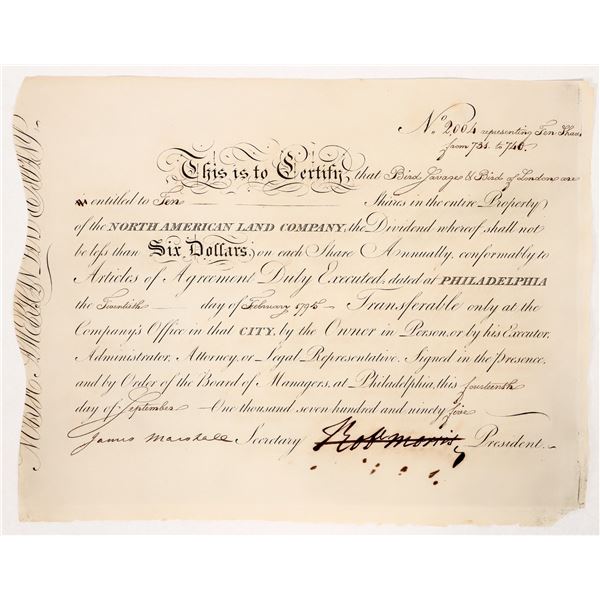 No. 2,004 representing Ten Shares
from 731 to 740.
This is to Certify, that Bird Savage & Bird of London are
entitled to Ten Shares in the entire Property
of the NORTH AMERICAN LAND COMPANY, the Dividend whereof shall not
be less than Six Dollars, on each Share Annually, conformably to
Articles of Agreement Duly Executed, dated at PHILADELPHIA
the Twentieth day of February 1795 Transferable only at the
Company's Office in that CITY, by the Owner in Person, or by his Executor,
Administrator, Attorney, or Legal Representative. Signed in the Presence,
and by Order of the Board of Managers, at Philadelphia, this fourteenth
day of September One thousand seven hundred and ninety five
James Marshall Secretary Robt Morris President.